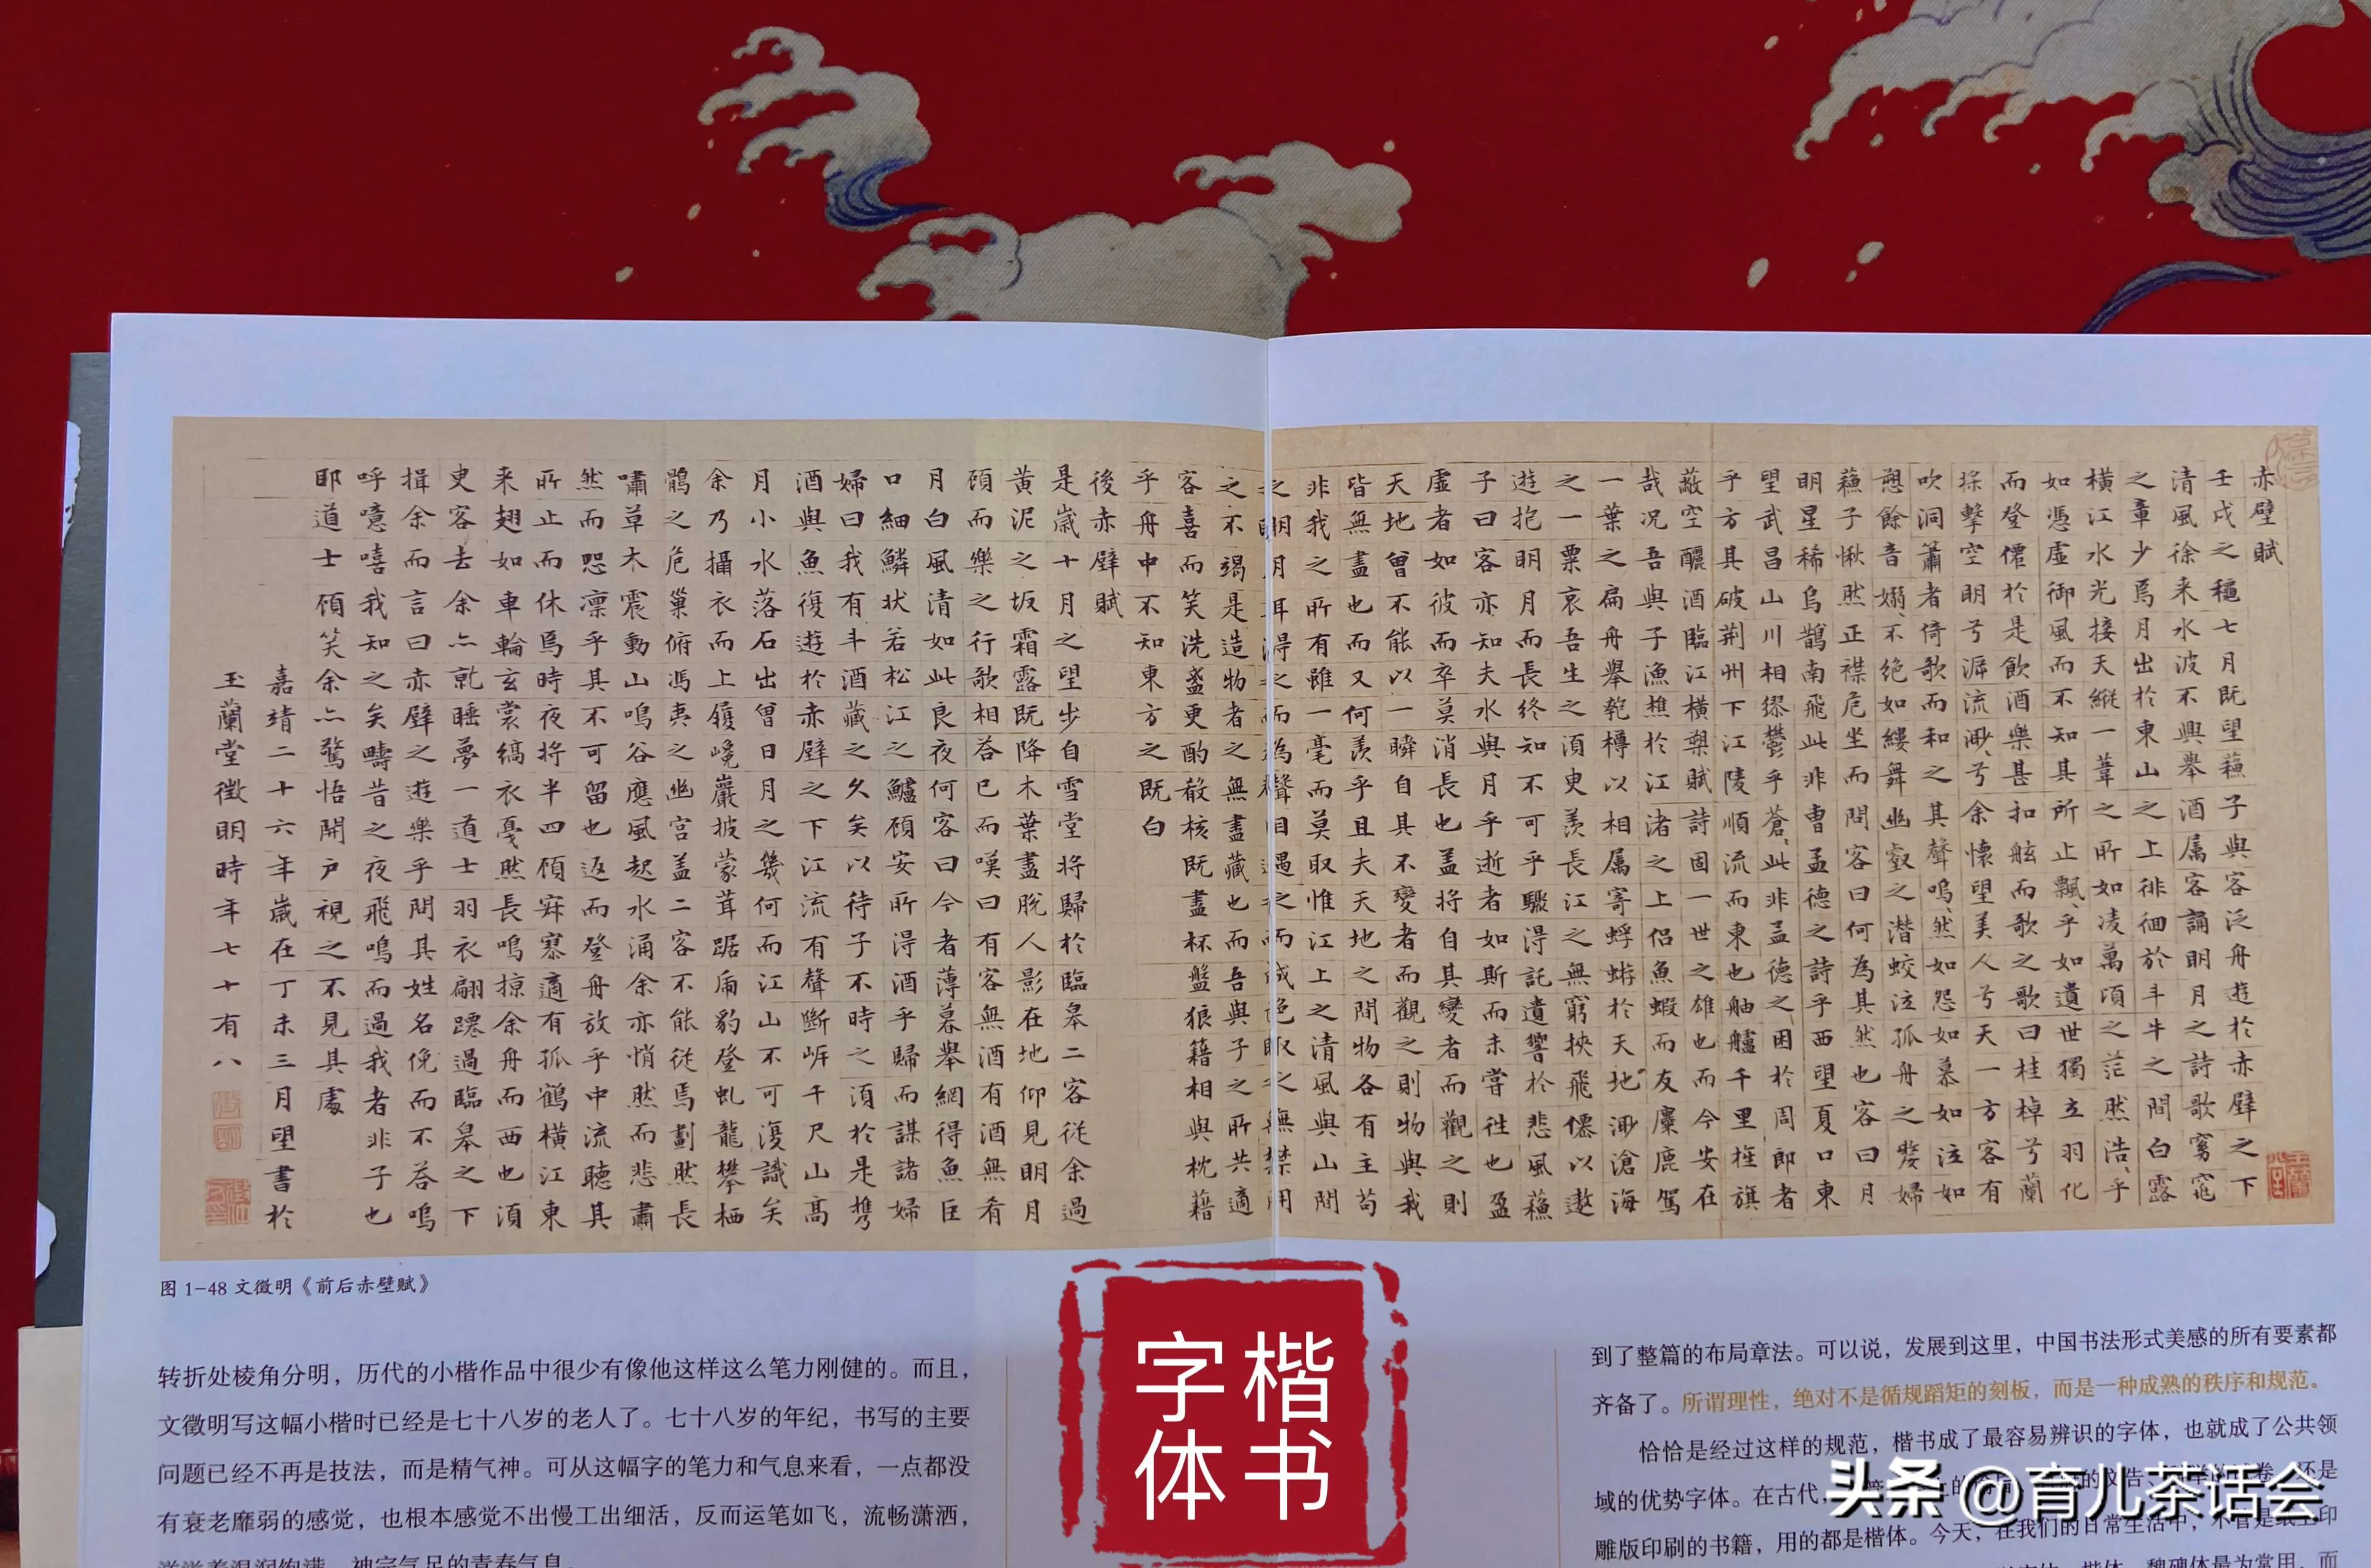 赤壁賦
壬戌之穐七月既望蘓子與客泛舟遊於赤壁之下
清風徐来水波不興舉酒属客誦明月之詩歌窈窕
之章少焉月出於東山之上徘徊於斗牛之間白露
橫江水光接天縱一葦之所如凌萬頃之茫然浩乎
如憑虛御風而不知其所止飄乎如遺世獨立羽化
而登僊於是飲酒樂甚扣舷而歌之歌曰桂棹兮蘭
採擊空明兮泝流渺兮余懷望美人兮天一方客有
吹洞簫者倚歌而和之其聲嗚然如怨如慕如泣如
愬餘音嫋不絕如縷舞幽壑之潜蛟泣孤舟之嫠婦
蘓子愀然正襟危坐而問客曰何為其然也客曰月
明星稀烏鵲南飛此非曹孟德之詩乎西望夏口東
望武昌山川相繆鬱乎蒼此非孟德之困於周郎者
乎方其破荆州下江陵順流而東也舳艫千里旌旗
蔽空釃酒臨江橫槊賦詩固一世之雄也而今安在
哉况吾與子漁樵於江渚之上侣魚蝦而友麋鹿駕
一葉之扁舟舉匏樽以相属寄蜉蝣於天地渺滄海
之一粟哀吾生之湏臾羨長江之無窮挾飛僊以遨
遊抱明月而長終知不可乎驟淂託遺響於悲風蘓
子曰客亦知夫水與月乎逝者如斯而未嘗往也盈
虛者如彼而卒莫消長也盖將自其變者而觀之則
天地曾不能以一瞬自其不變者而觀之則物與我
皆無盡也而又何羨乎且夫天地之間物各有主苟
非我之所有雖一毫而莫取惟江上之清風與山間
之明月耳淂之而為聲目遇之而成色取之無禁用
之不竭是造物者之無盡藏也而吾與子之所共適
客喜而笑洗盞更酌殽核既盡杯盤狼籍相與枕藉
乎舟中不知東方之既白
後赤壁賦
是歳十月之望步自雪堂將歸於臨皋二客從余過
黃泥之坂霜露既降木葉盡脫人影在地仰見明月
頋而樂之行歌相荅已而嘆曰有客無酒有酒無肴
月白風清如此良夜何客曰今者薄暮舉網得魚巨
口細鱗状若松江之鱸頋安所淂酒乎歸而謀諸婦
婦曰我有斗酒藏之久矣以待子不時之湏於是携
酒與魚復遊於赤壁之下江流有聲斷岍千尺山高
月小水落石出曾日月之幾何而江山不可復識矣
余乃攝衣而上履巉巖披蒙茸踞虎豹登虬龍攀栖
鶻之危巢俯馮夷之幽宮盖二客不能從焉劃然長
嘯草木震動山鳴谷應風起水涌余亦悄然而悲肅
然而恐凛乎其不可留也返而登舟放乎中流聽其
所止而休焉時夜將半四頋寂寥適有孤鶴橫江東
来翅如車輪玄裳縞衣戞然長鳴掠余舟而西也湏
臾客去余亦就睡夢一道士羽衣翩躚過臨皋之下
揖余而言曰赤壁之遊樂乎問其姓名俛而不荅嗚
呼噫嘻我知之矣疇昔之夜飛鳴而過我者非子也
耶道士頋笑余亦驚悟開户視之不見其處
嘉靖二十六年歳在丁未三月望書於
玉蘭堂徵明時年七十有八
图1-48 文徵明《前后赤壁赋》
转折处棱角分明，历代的小楷作品中很少有像他这样这么笔力刚健的。而且，
文徵明写这幅小楷时已经是七十八岁的老人了。七十八岁的年纪，书写的主要
问题已经不再是技法，而是精气神。可从这幅字的笔力和气息来看，一点都没
有衰老靡弱的感觉，也根本感觉不出慢工出细活，反而运笔如飞，流畅潇洒，
神完气足的青春气息。
楷书
字体
到了整篇的布局章法。可以说，发展到这里，中国书法形式美感的所有要素都
齐备了。所谓理性，绝对不是循规蹈矩的刻板，而是一种成熟的秩序和规范。
恰恰是经过这样的规范，楷书成了最容易辨识的字体，也就成了公共领
域的优势字体。在古代，
雕版印刷的书籍，用的都是楷体。今天，在我们的日常生活中，不管是纸上印
楷体、魏碑体最为常用，而
头条 @育儿茶话会